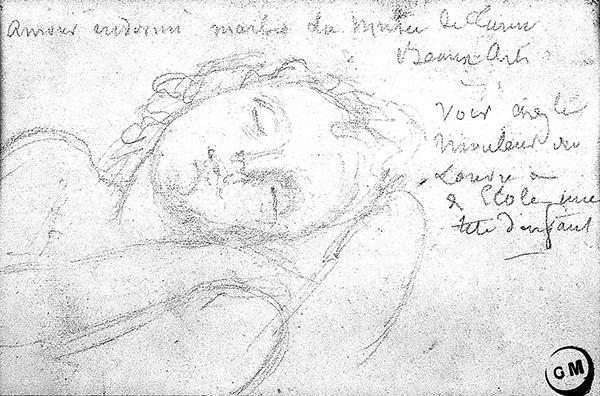 Amour endormi marbre du Musée de Turin
Beaux-Arts
Voir chez le
Mouleur du
Louvre ou
de l'Ecole une
tête d'enfant
GM